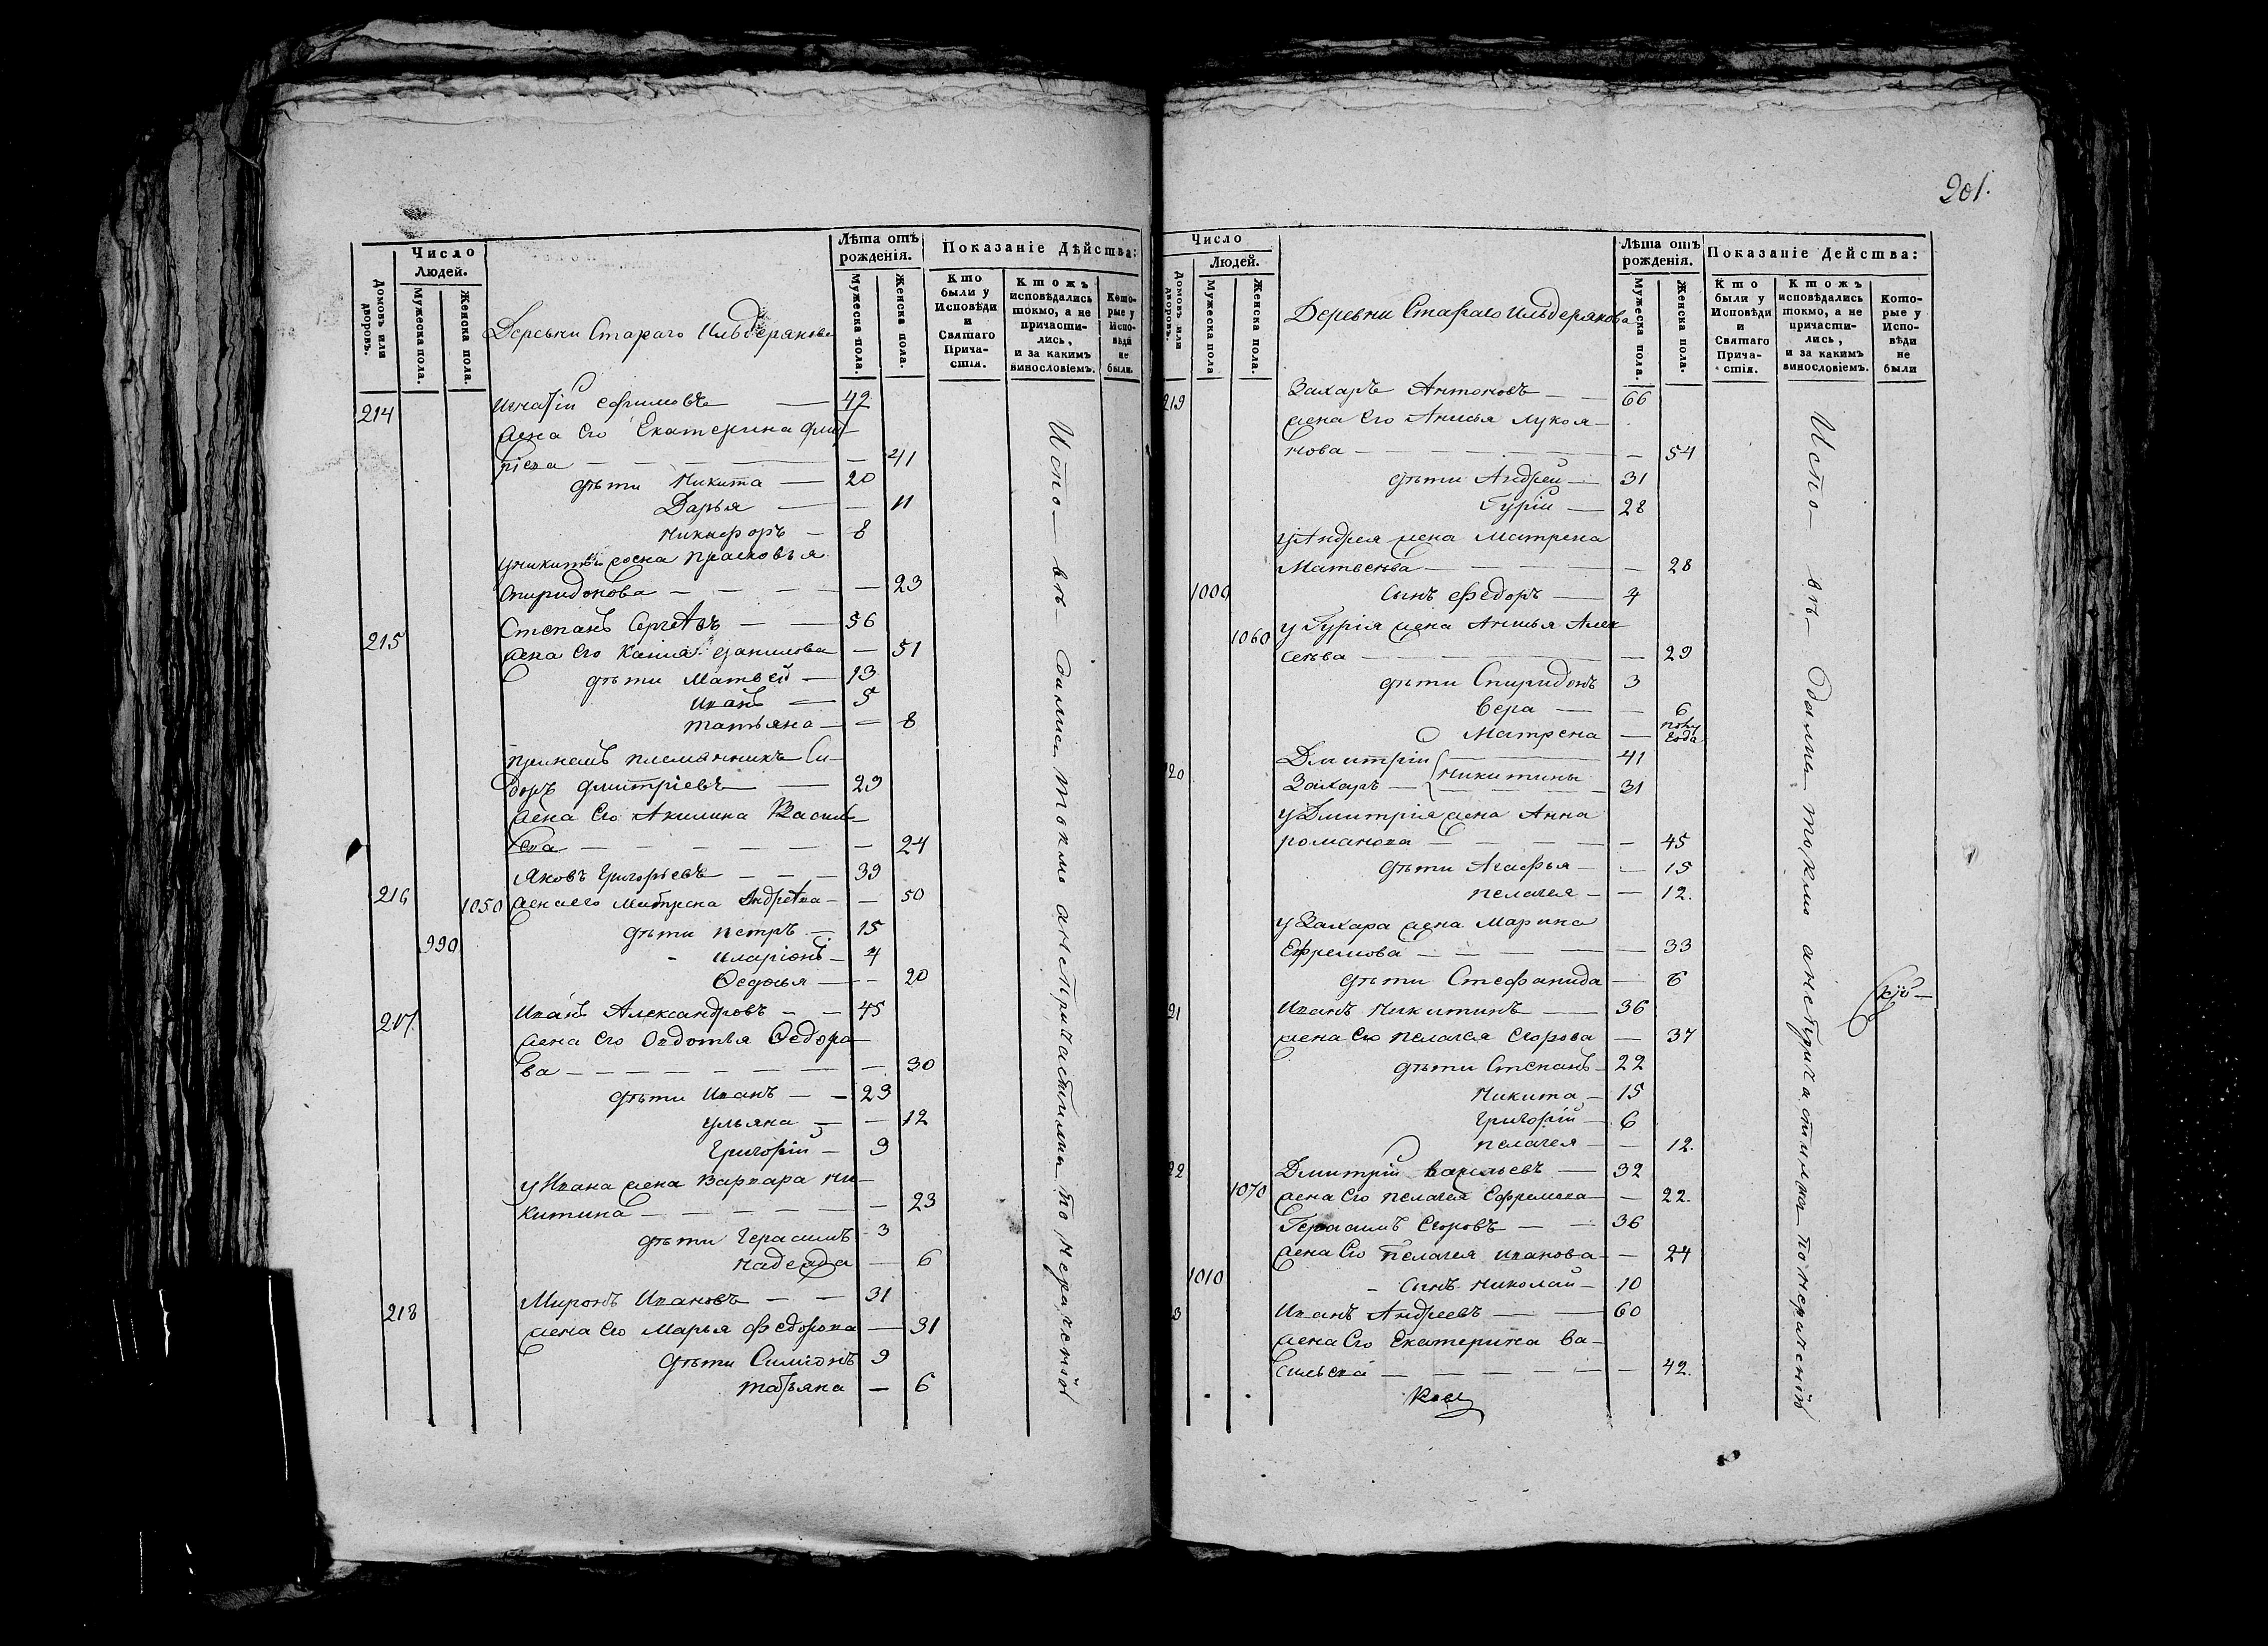 Число
Людей.
Домовъ или дворовъ.
Мужеска пола.
Женска пола.
Лѣта отъ рожденія.
Мужеска пола.
Женска пола.
Показаніе Дѣйства:
Кто были у Исповѣди и Святаго Прича-стія.
Ктожъ исповѣдались токмо, а не причасти-лись, и за какимъ винословіемъ.
Кото-рые у Испо-вѣди не были.
Деревни Стараго Ильдерякова
214 Игнатій Ефимовъ — 42
жена его Екатерина Дмит-
ріева — — 41
дѣти Никита — 20
Дарья — — 11
Никифоръ — 8
у Никиты жена Прасковья
Спиридонова — — 23
215 Степанъ Сергѣевъ — 56
жена его Данилова — 51
дѣти Матвей — 13
Иванъ — 5
Татьяна — — 8
племянникъ Си-
доръ Дмитріевъ — 29
жена его Акилина Василь-
ева — — 24
216 Яковъ Григорьевъ — 39
1050 жена его Матрена Андреева — — 50
990 дѣти Петръ — 15
Иларіонъ — 4
Федосья — — 20
217 Иванъ Александровъ — 45
жена его Овдотья Федоро-
ва — — 30
дѣти Иванъ — 23
Ульяна — — 12
Григорій — 9
у Ивана жена Варвара Ни-
китина — — 23
дѣти Герасимъ 3
Надежда — 6
218 Миронъ Ивановъ — 31
жена его Марья Федорова — 31
дѣти Симіонъ 9
Татьяна — 6
Испо- вѣ- дались токмо а не причастились по нераченію
201.
Число
Людей.
Домовъ или дворовъ.
Мужеска пола
Женска пола.
Лѣта отъ рожденія.
Мужеска пола.
Женска пола.
Показаніе Действа:
Кто были у Исповѣди и Святаго Прича-стія.
Ктожъ исповѣдались токмо, а не причасти-лись, и за какимъ винословіемъ.
Кото-рые у Испо-вѣди не были
Деревни Стараго Ильдерякова
219 Захаръ Антоновъ — 66
жена его Анисья Лукоя-
нова — — 54
дѣти Андрей — 31
Гурій — 28
у Андрея жена Матрена
Матвеева — — 28
1000 сынъ Федоръ — 4
1060 у Гурія жена Анисья Алек
сеева — — 29
дѣти Спиридонъ 3
Вера — — 6
Матрена — полу года
20 Дмитрій — 41
Никитины
Захаръ — 31
у Дмитрія жена Анна
Романова — — 45
дѣти Агафья — — 15
Пелагея — — 12.
у Захара жена Марина
Ефремова — — 33
дѣти Стефанида — 6
21 Иванъ Никитинъ — 36
жена его Пелагея Егорова — 37
дѣти Степанъ — 22
Никита — 15
Григорій — 6
Пелагея — — 12.
22 Дмитрій Васильевъ — 32
1070 жена его Пелагея Ефремова — — 22.
Герасимъ Егоровъ — 36
жена его Пелагея Иванова — — 24
1010 сынъ Николай — 10
3 Иванъ Андреевъ — 60
жена его Екатерина Ва-
сильева — — 42.
Испо- вѣ- дались токмо а не причастились по нераченію